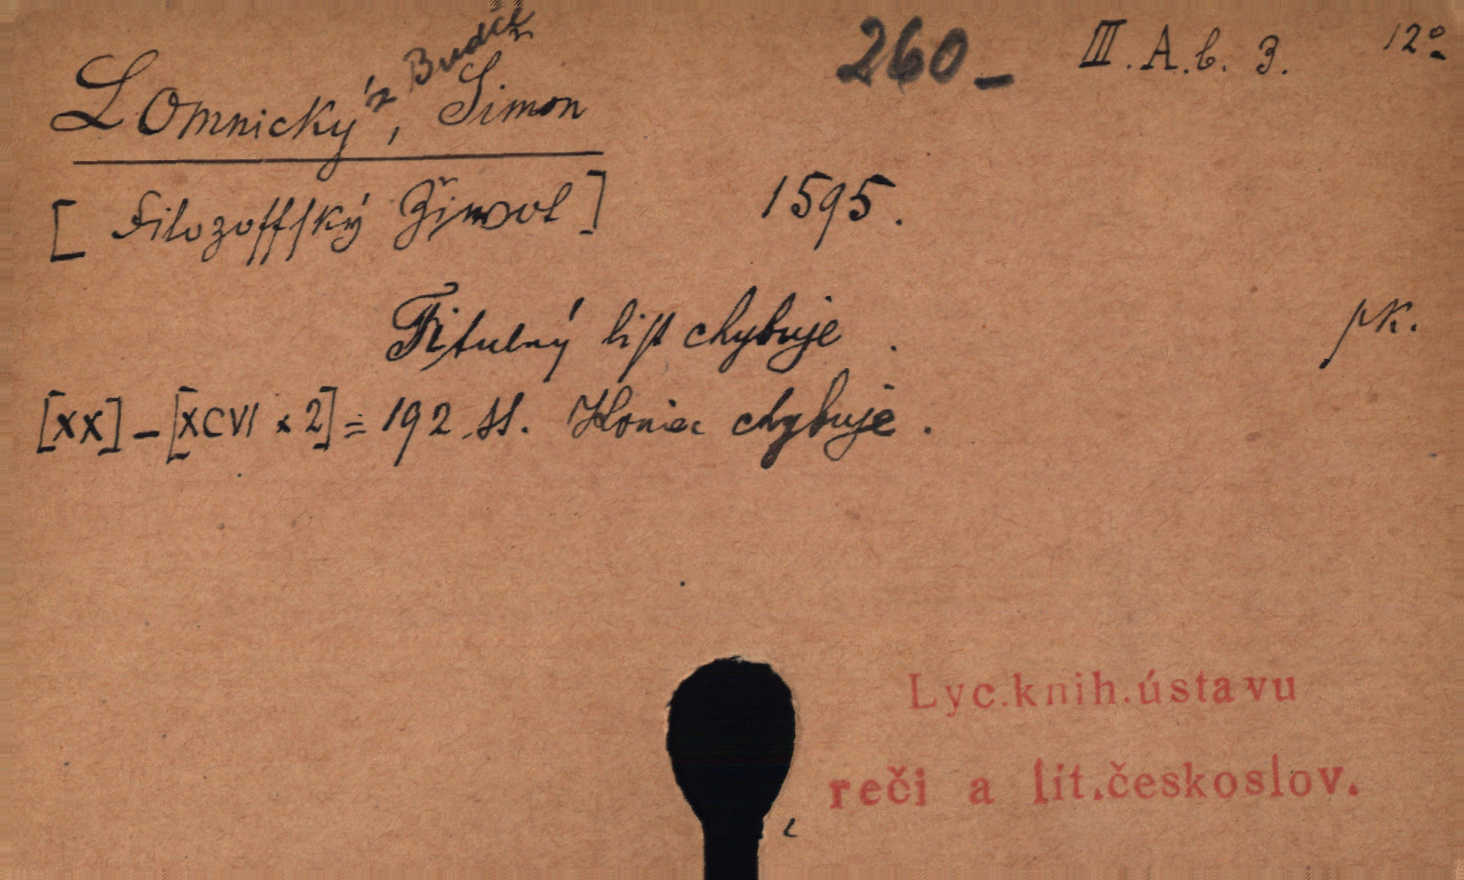 Lomnický z Budče, Simon
260 –
III. A. b. 3.
12°
[Filozoffský Žiwot]
1595.
Titulný list chybuje.
pk.
[XX] – [XCVI × 2] = 192 ss. Koniec chybuje.
Lyc.knih.ústavu
reči a lit.českoslov.